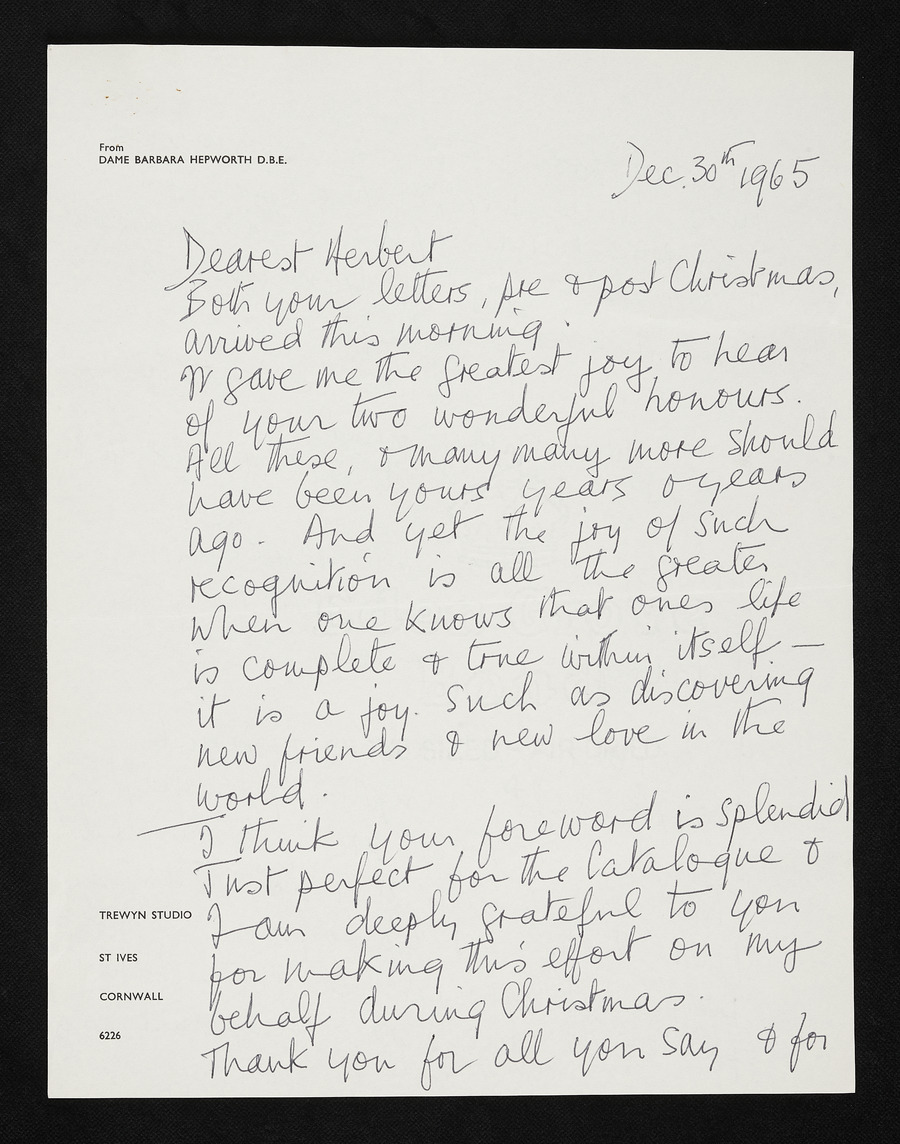 From
DAME BARBARA HEPWORTH D.B.E.
Dec. 30th 1965
Dearest Herbert
Both your letters, pre & post Christmas,
arrived this morning.
It gave me the greatest joy to hear
of your two wonderful honours.
All these, & many many more should
have been yours years & years
ago. And yet the joy of such
recognition is all the greater
when one knows that ones life
is complete & true within itself –
it is a joy. Such as discovering
new friends & new love in the
world.
I think your foreword is splendid
Just perfect for the Catalogue &
I am deeply grateful to you
for making this effort on my
behalf during Christmas.
Thank you for all you say & for
TREWYN STUDIO
ST IVES
CORNWALL
6226